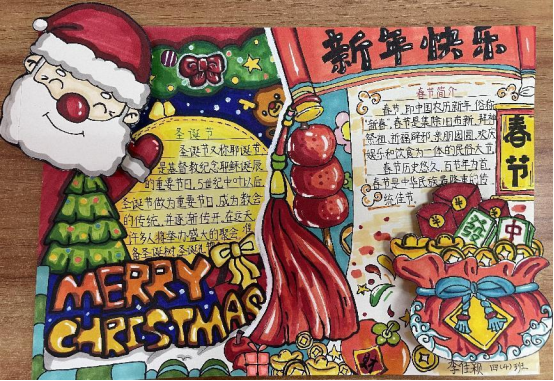 新年快乐
圣诞节
圣诞节又称耶诞节
是基督教纪念耶稣诞辰
的重要节日,5世纪中叶以后
圣诞节做为重要节日,成为教会
的传统,并逐渐传开,在近天
许多人将举办盛大的聚会,准
备圣诞树
MERRY
CHRISTMAS
春节简介
春节,即中国农历新年,俗称
"新春",春节是集除旧布新、拜神
祭祖、祈福辟邪、亲朋团圆、欢庆
娱乐和饮食为一体的民俗大节
春节历史悠久,百节为首,
春节是中华民族最隆重的传
统佳节。
春节
發
中
李佳 四(4)班